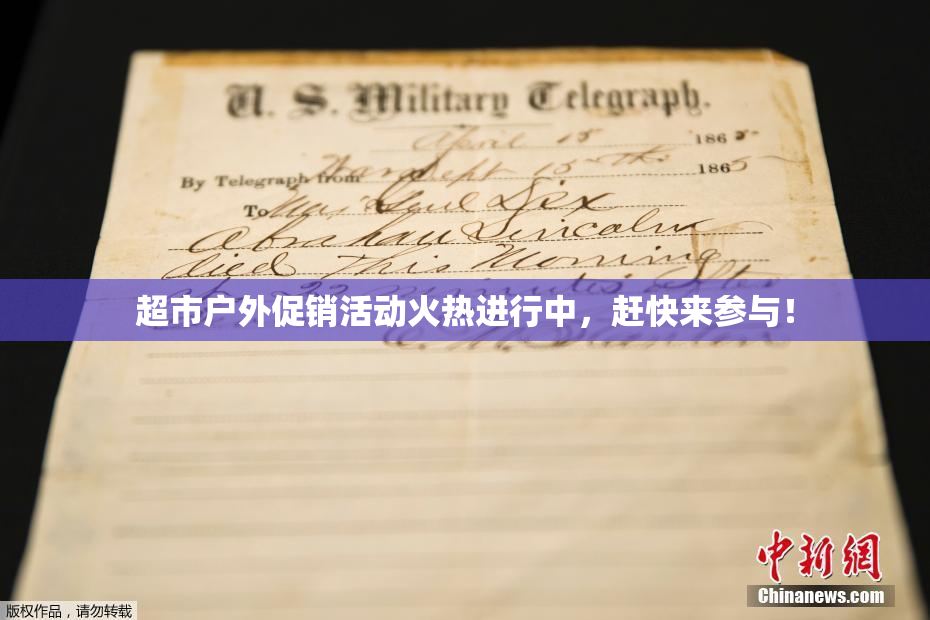 U. S. Military Telegraph.
April 15 1865
By Telegraph from War Dept 15th 1865
To Maj Genl Dix
Abraham Lincoln
died This Morning
22 minutes after
超市户外促销活动火热进行中，赶快来参与！
E. M. Stanton
中新網
Chinanews.com
版权作品，请勿转载